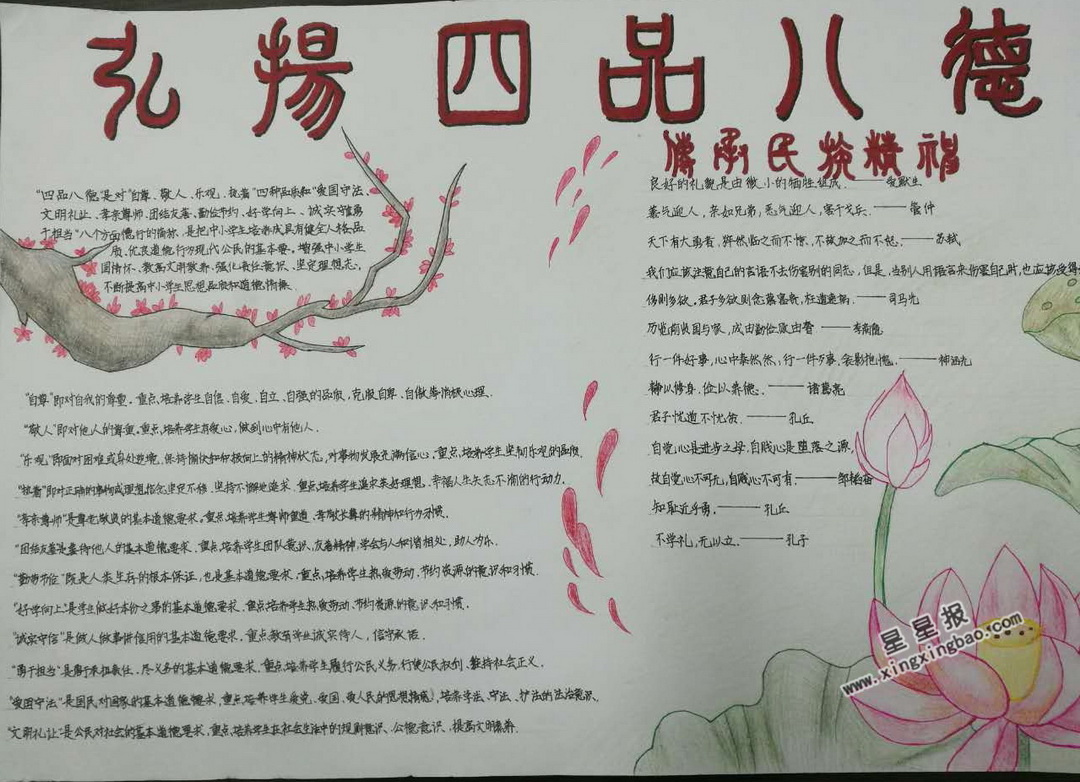 弘揚四品八德
傳承民族精神
"四品八德"是对"自尊、敬人、乐观、执着"四种品质和"爱国守法、
文明礼让、孝亲尊师、团结友善、勤俭节约、好学向上、诚实守信、勇
于担当"八个方面德行的简称.是把中小学生培养成具有健全人格品
质、优良道德行为现代公民的基本要求.增强中小学生
国情怀、教高文明教养、强化责任意识、坚定理想志,
不断提高中小学生思想品质和道德情操.
"自尊"即对自我的尊重.重点培养学生自信、自爱、自立、自强的品质,克服自卑、自傲等消极心理.
"敬人"即对他人的尊重.重点培养学生有爱心,做到心中有他人.
"乐观"即面对困难或身处逆境,保持愉快和积极向上的精神状态,对事物发展充满信心,重点培养学生坚韧乐观的品质.
"执着"即对正确的事物或理想信念坚定不移、坚持不懈地追求.重点培养学生追求美好理想、幸福人生矢志不渝的行动力.
"孝亲尊师"是尊老敬贤的基本道德要求,重点培养学生尊师重道、孝敬长辈的精神和行为习惯.
"团结友善"是善待他人的基本道德要求,重点培养学生团队意识,友善精神,学会与人和谐相处,助人为乐.
"勤劳节俭"既是人类生存的根本保证,也是基本道德要求.重点培养学生热爱劳动、节约资源的意识和习惯.
"好学向上"是学生做好本份之事的基本道德要求.重点培养学生热爱劳动、节约资源的意识和习惯.
"诚实守信"是做人做事讲信用的基本道德要求.重点教育学生诚实待人,信守承诺.
"勇于担当"是勇于承担责任、尽义务的基本道德要求,重点培养学生履行公民义务,行使公民权利,维持社会正义.
"爱国守法"是国民对国家的基本道德要求,重点培养学生爱党、爱国、爱人民的思想情感,培养学法、守法、护法的法治意识.
"文明礼让"是公民对社会的基本道德要求,重点培养学生在社会生活中的规则意识、公德意识、提高文明素养.
良好的礼貌是由微小的牺牲组成.——爱默生
善气迎人,亲如兄弟;恶气迎人,害于戈兵.——管仲
天下有大勇者,猝然临之而不惊,不故加之而不怒.——苏轼
我们应该注意自己的言语不去伤害别的同志,但是,当别人用语言来伤害自己时,也应该受得
侈则多欲.君子多欲则念慕富贵,枉道速祸.——司马光
历览前贤国与家,成由勤俭败由奢——李商隐
行一件好事,心中泰然;行一件歹事,衾影抱愧.——神涵光
静以修身,俭以养德.——诸葛亮
君子忧道不忧贫.——孔丘
自觉心是进步之母,自贱心是堕落之源,
故自觉心不可无,自贱心不可有.——邹韬奋
知耻近乎勇.——孔丘
不学礼,无以立.——孔子
星星报
www.xingxingbao.com